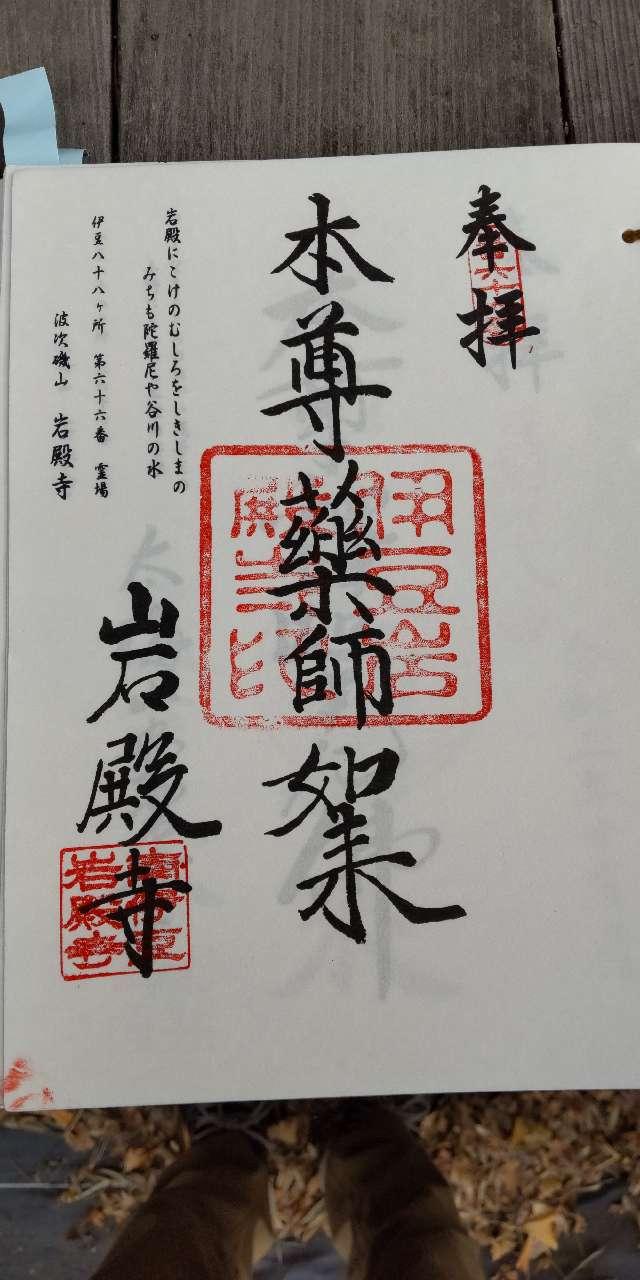 奉拝
本尊藥師如来
伊豆岩
殿寺印
岩殿寺
岩殿寺
岩殿にこけのむしろをしきしまの
みちも陀羅尼や谷川の水
伊豆八十八ヶ所 第六十六番 霊場
波次磯山 岩殿寺